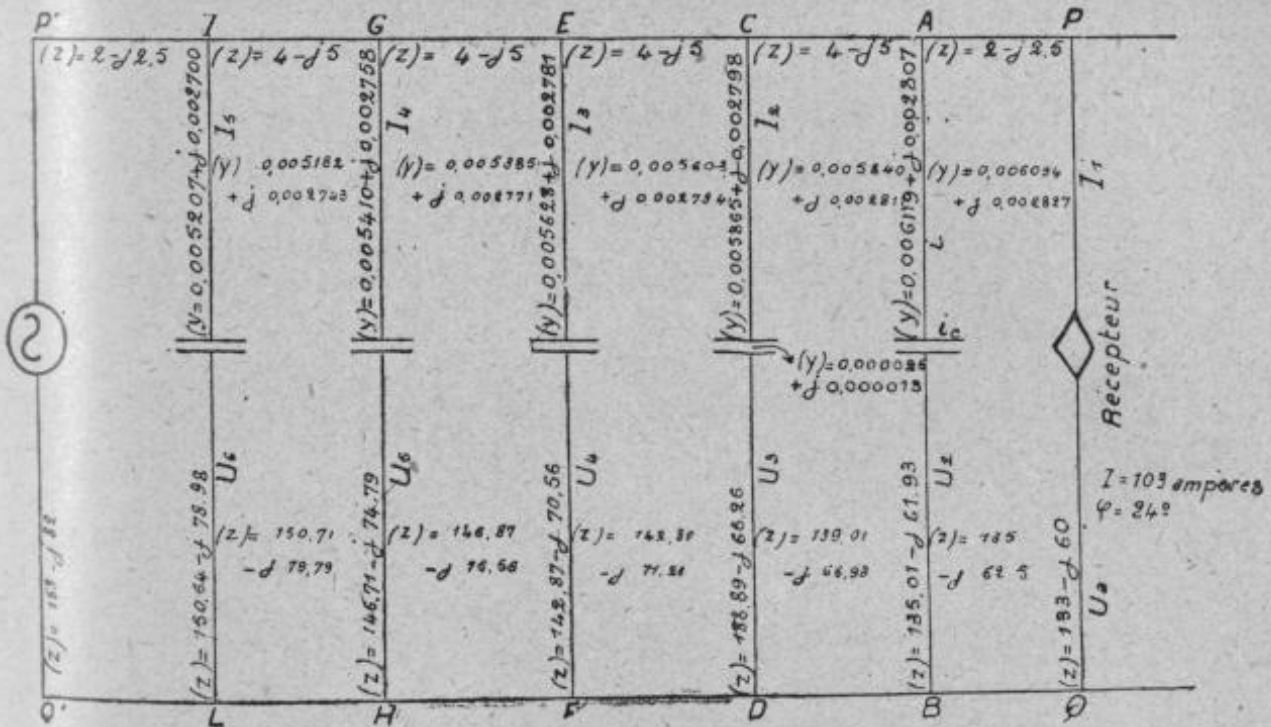 P' I G E C A P
(Z)=2-j2,5
(Z)=4-j5
(Z)= 4-j5
(Z)= 4-j5
(Z)= 4-j5
(Z)= 2-j2,5
(Y=0,0052074+j0,002700
I5
(Y) 0,005182
+ j 0,002743
(Y)=0,005410+j0,002758
I4
(Y)= 0,005385
+ j 0,002771
(Y)=0,005628+j0,002781
I3
(Y)=0,005603
+j 0,002794
(Y)=0,005865+j0,002798
I2
(Y)=0,005840
+j 0,00281
(Y)=0,006119+j0,002807
L
(Y)=0,006094
+j 0,002827
I1
ic
(Y)=0,000025
+j 0,000013
Récepteur
I=103 ampères
φ=24º
(Z)=150,64-j78.98
U6
(Z)= 150,71
-j 79,79
(Z)=146,71-j74.79
U5
(Z)= 146,87
-j
(Z)=142,87-j70,56
U4
(Z)= 142,87
-j 71,21
(Z)=138,89-j66.26
U3
(Z)= 139,01
-j 66,93
(Z)=135,01-j61.93
U2
(Z)= 135
-j 62 5
(Z)=133-j60
Q' L H F D B Q